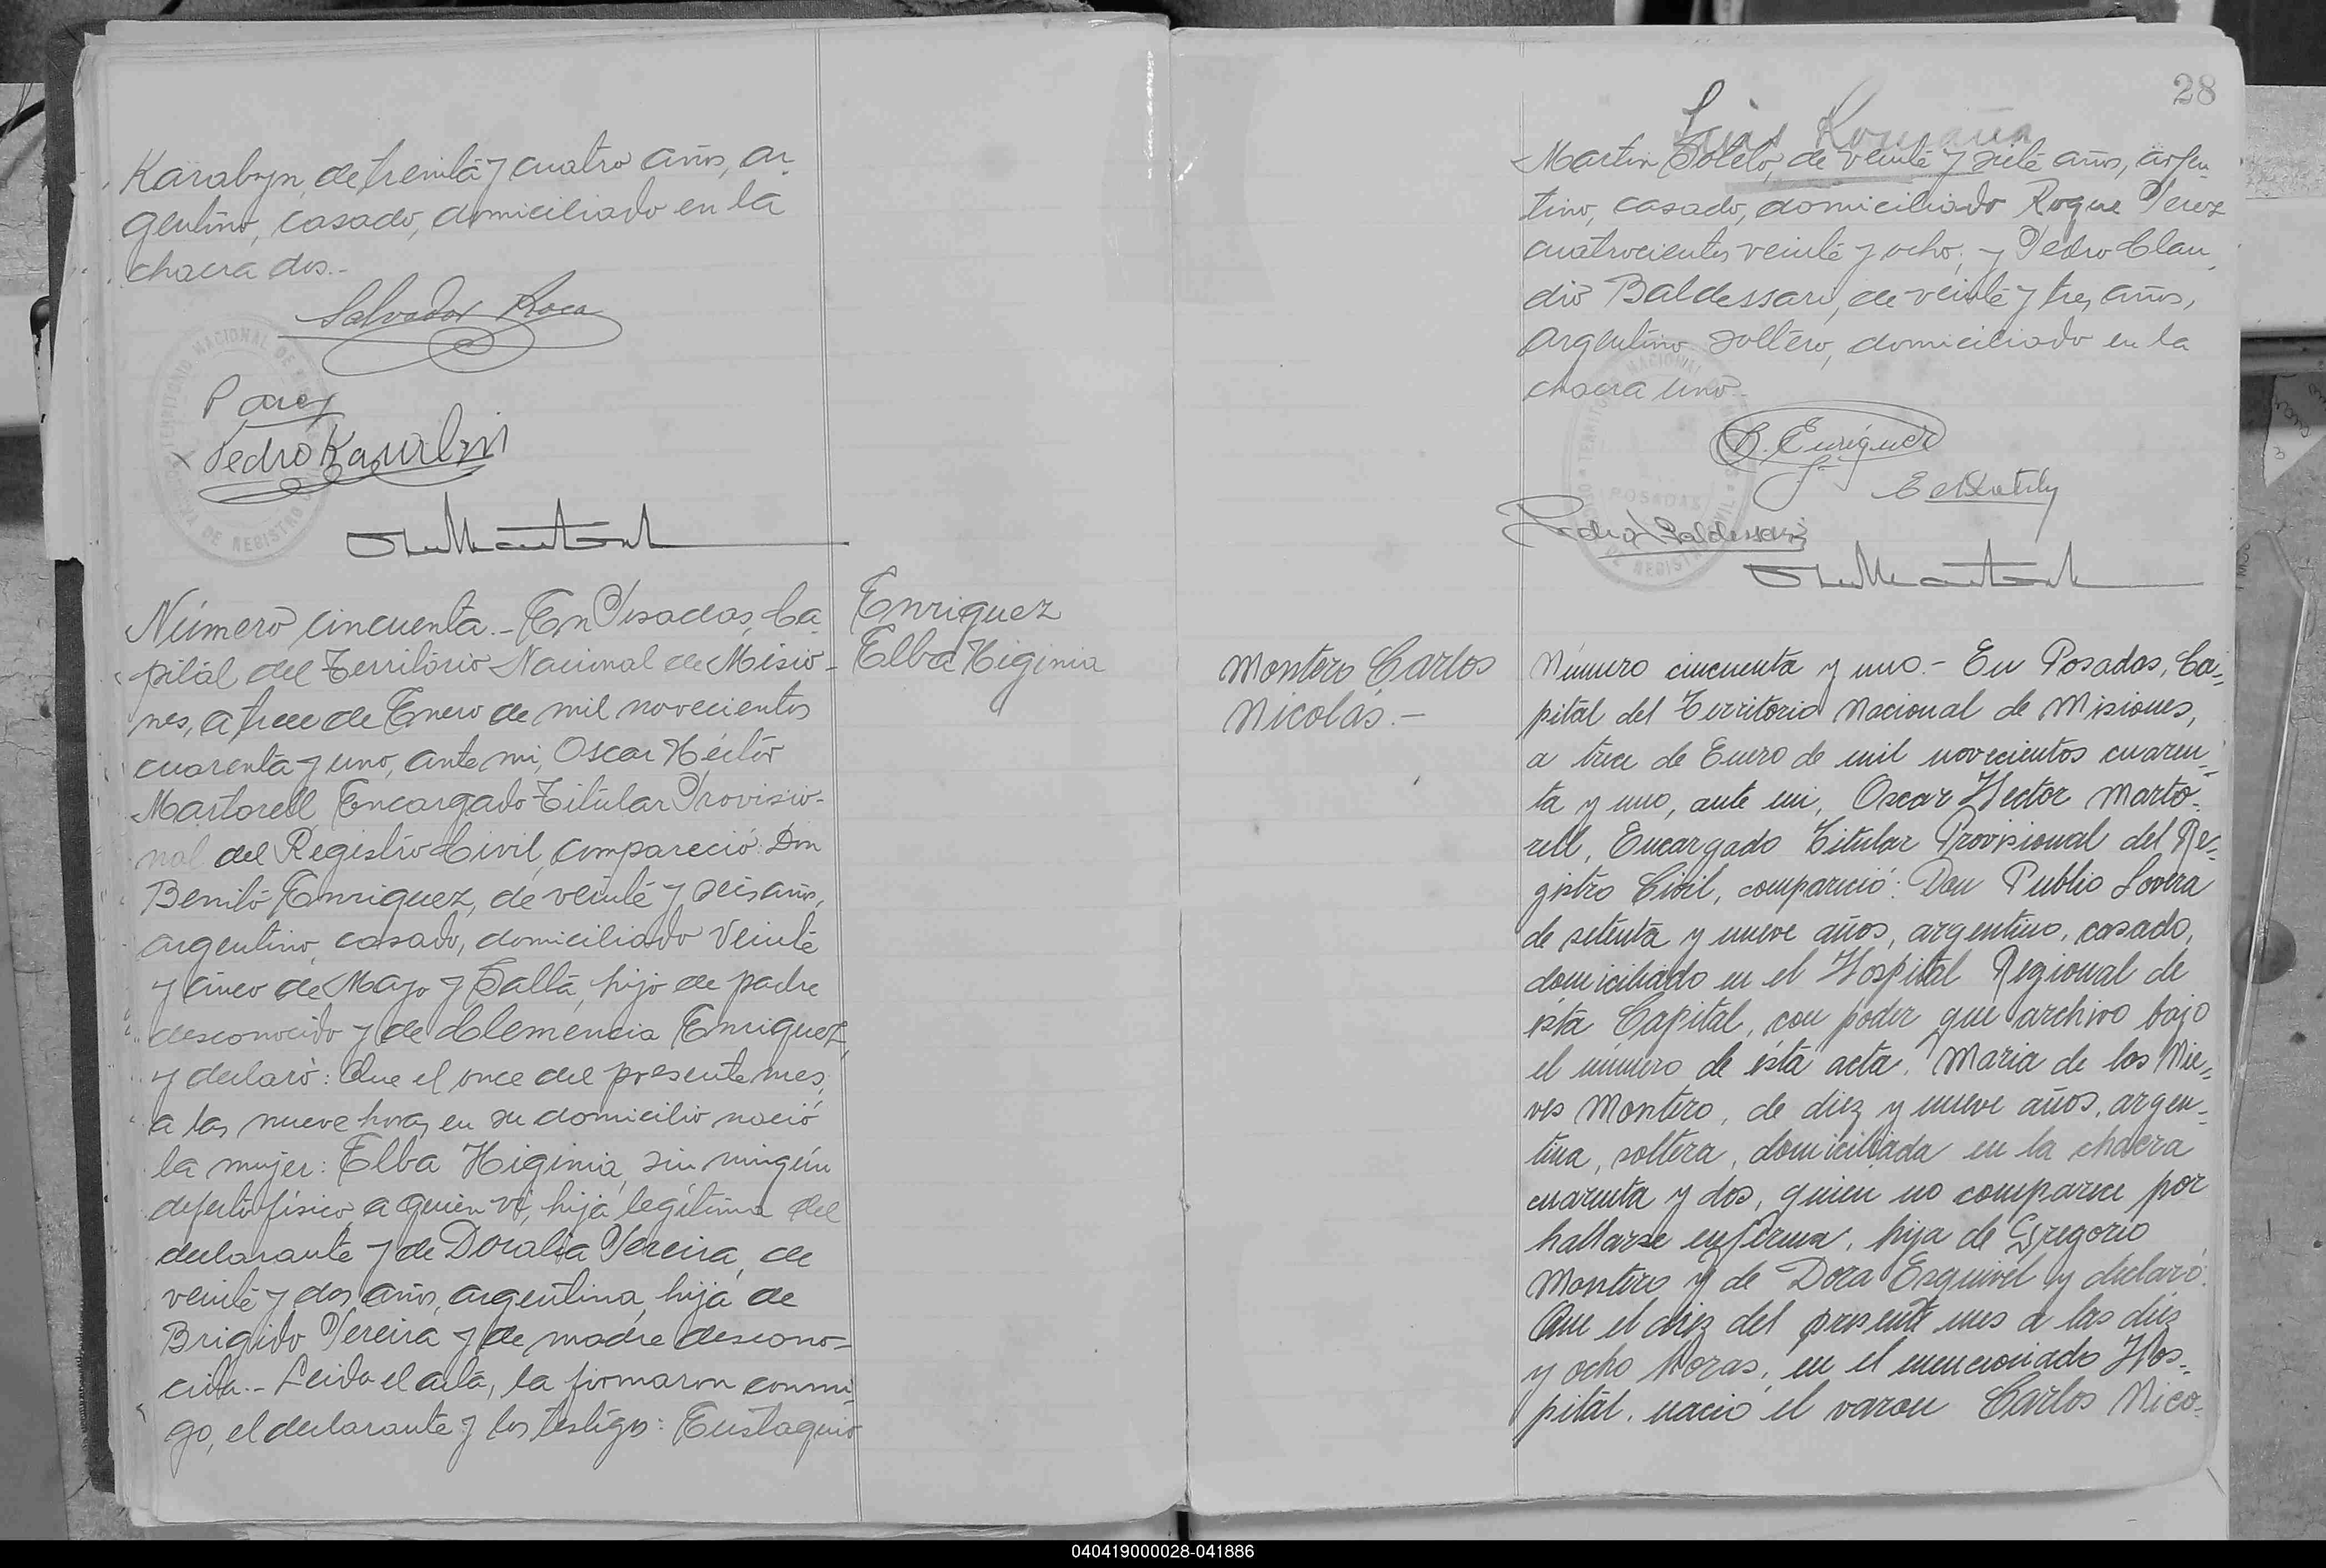 Karabyn, de treinta y cuatro años, ar-
gentino, casado, domiciliado en la
chacra dos.-
Salvador Roca
Pedro Karabin
Número cincuenta.- En Posadas, Ca-
pital del Territorio Nacional de Misio-
nes, a trece de Enero de mil novecientos
cuarenta y uno, ante mi, Oscar Héctor
Martorell, Encargado Titular Provisio-
nal del Registro Civil, compareció: Don
Benito Enriquez, de veinte y seis años,
argentino, casado, domiciliado Veinte
y cinco de Mayo y Salta, hijo de padre
desconocido y de Clemencia Enriquez,
y declaró: Que el once del presente mes,
a las nueve horas, en su domicilio nació
la mujer: Elba Higinia, sin ningún
defecto físico, a quién ví, hija legítima del
declarante y de Doralia Pereira, de
veinte y dos años, argentina, hija de
Brigido Pereira y de madre descono-
cida.- Leida el acta, la firmaron conmi-
go, el declarante y los testigos: Eustaquio
Enriquez
Elba Higinia
28
Luis
Martin Sotelo, de veinte y siete años, argen-
tino, casado, domiciliado Roque Perez
cuatrocientos veinte y ocho; y Pedro Clau-
dio Baldessari, de veinte y tres años,
argentino soltero, domiciliado en la
chacra uno.-
B. Enriquez
Pedro Baldessari
POSADAS
Montero Carlos
Nicolás.-
Número cincuenta y uno.- En Posadas, Ca-
pital del Territorio Nacional de Misiones,
a trece de Enero de mil novecientos cuaren-
ta y uno, ante mi, Oscar Hector Marto-
rell, Encargado Titular Provisional del Re-
gistro Civil, compareció: Don Publio Lovera
de setenta y nueve años, argentino, casado,
domiciliado en el Hospital Regional de
ésta Capital, con poder que archivo bajo
el número de ésta acta. Maria de los Nie-
ves Montero, de diez y nueve años, argen-
tina, soltera, domiciliada en la chacra
cuarenta y dos, quien no comparece por
hallarse enferma, hija de Gregorio
Montero y de Dora Esquivel y declaró:
Que el diez del presente mes a las diez
y ocho horas, en el mencionado Hos-
pital, nació el varon Carlos Nico-
040419000028-041886